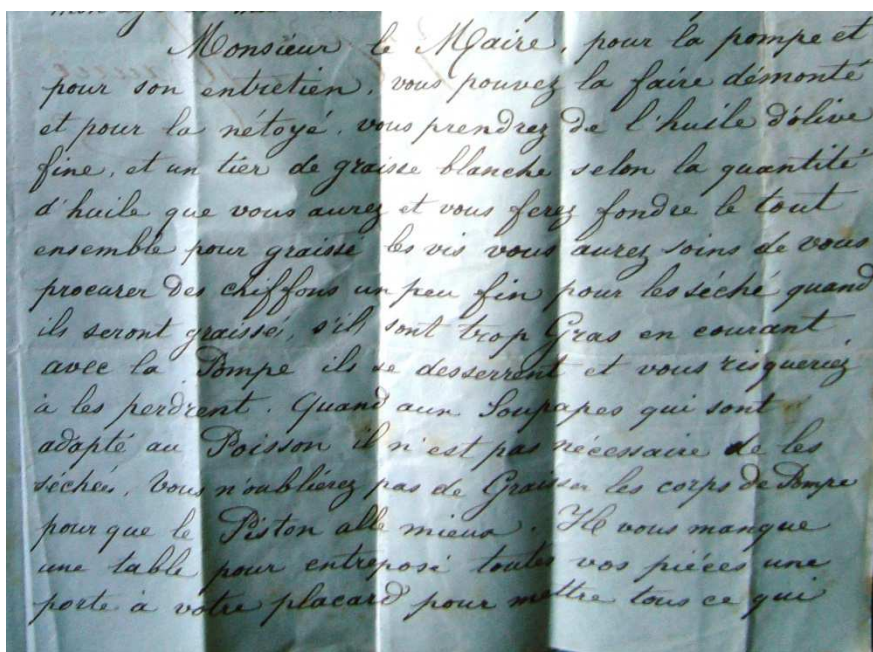 Monsieur le Maire, pour la pompe et
pour son entretien, vous pouvez la faire démonté
et pour la nétoyé, vous prendrez de l'huile d'olive
fine, et un tier de graisse blanche selon la quantité
d'huile que vous aurez et vous ferez fondre le tout
ensemble pour graisse les vis vous aurez soins de vous
procurer des chiffons un peu fin pour les séché quand
ils seront graissés, s'ils sont trop Gras en courant
avec la Pompe ils se desserrent et vous risqueriez
à les perdrent. Quand aun Soupapes qui sont
adapté au Poisson il n'est pas nécessaire de les
séchées, Vous n'oublierez pas de Graisser les corps de Pompe
pour que le Piston alle mieux. Il vous manque
une table pour entreposé toutes vos pièces une
porte à votre placard pour mettre tous ce qui